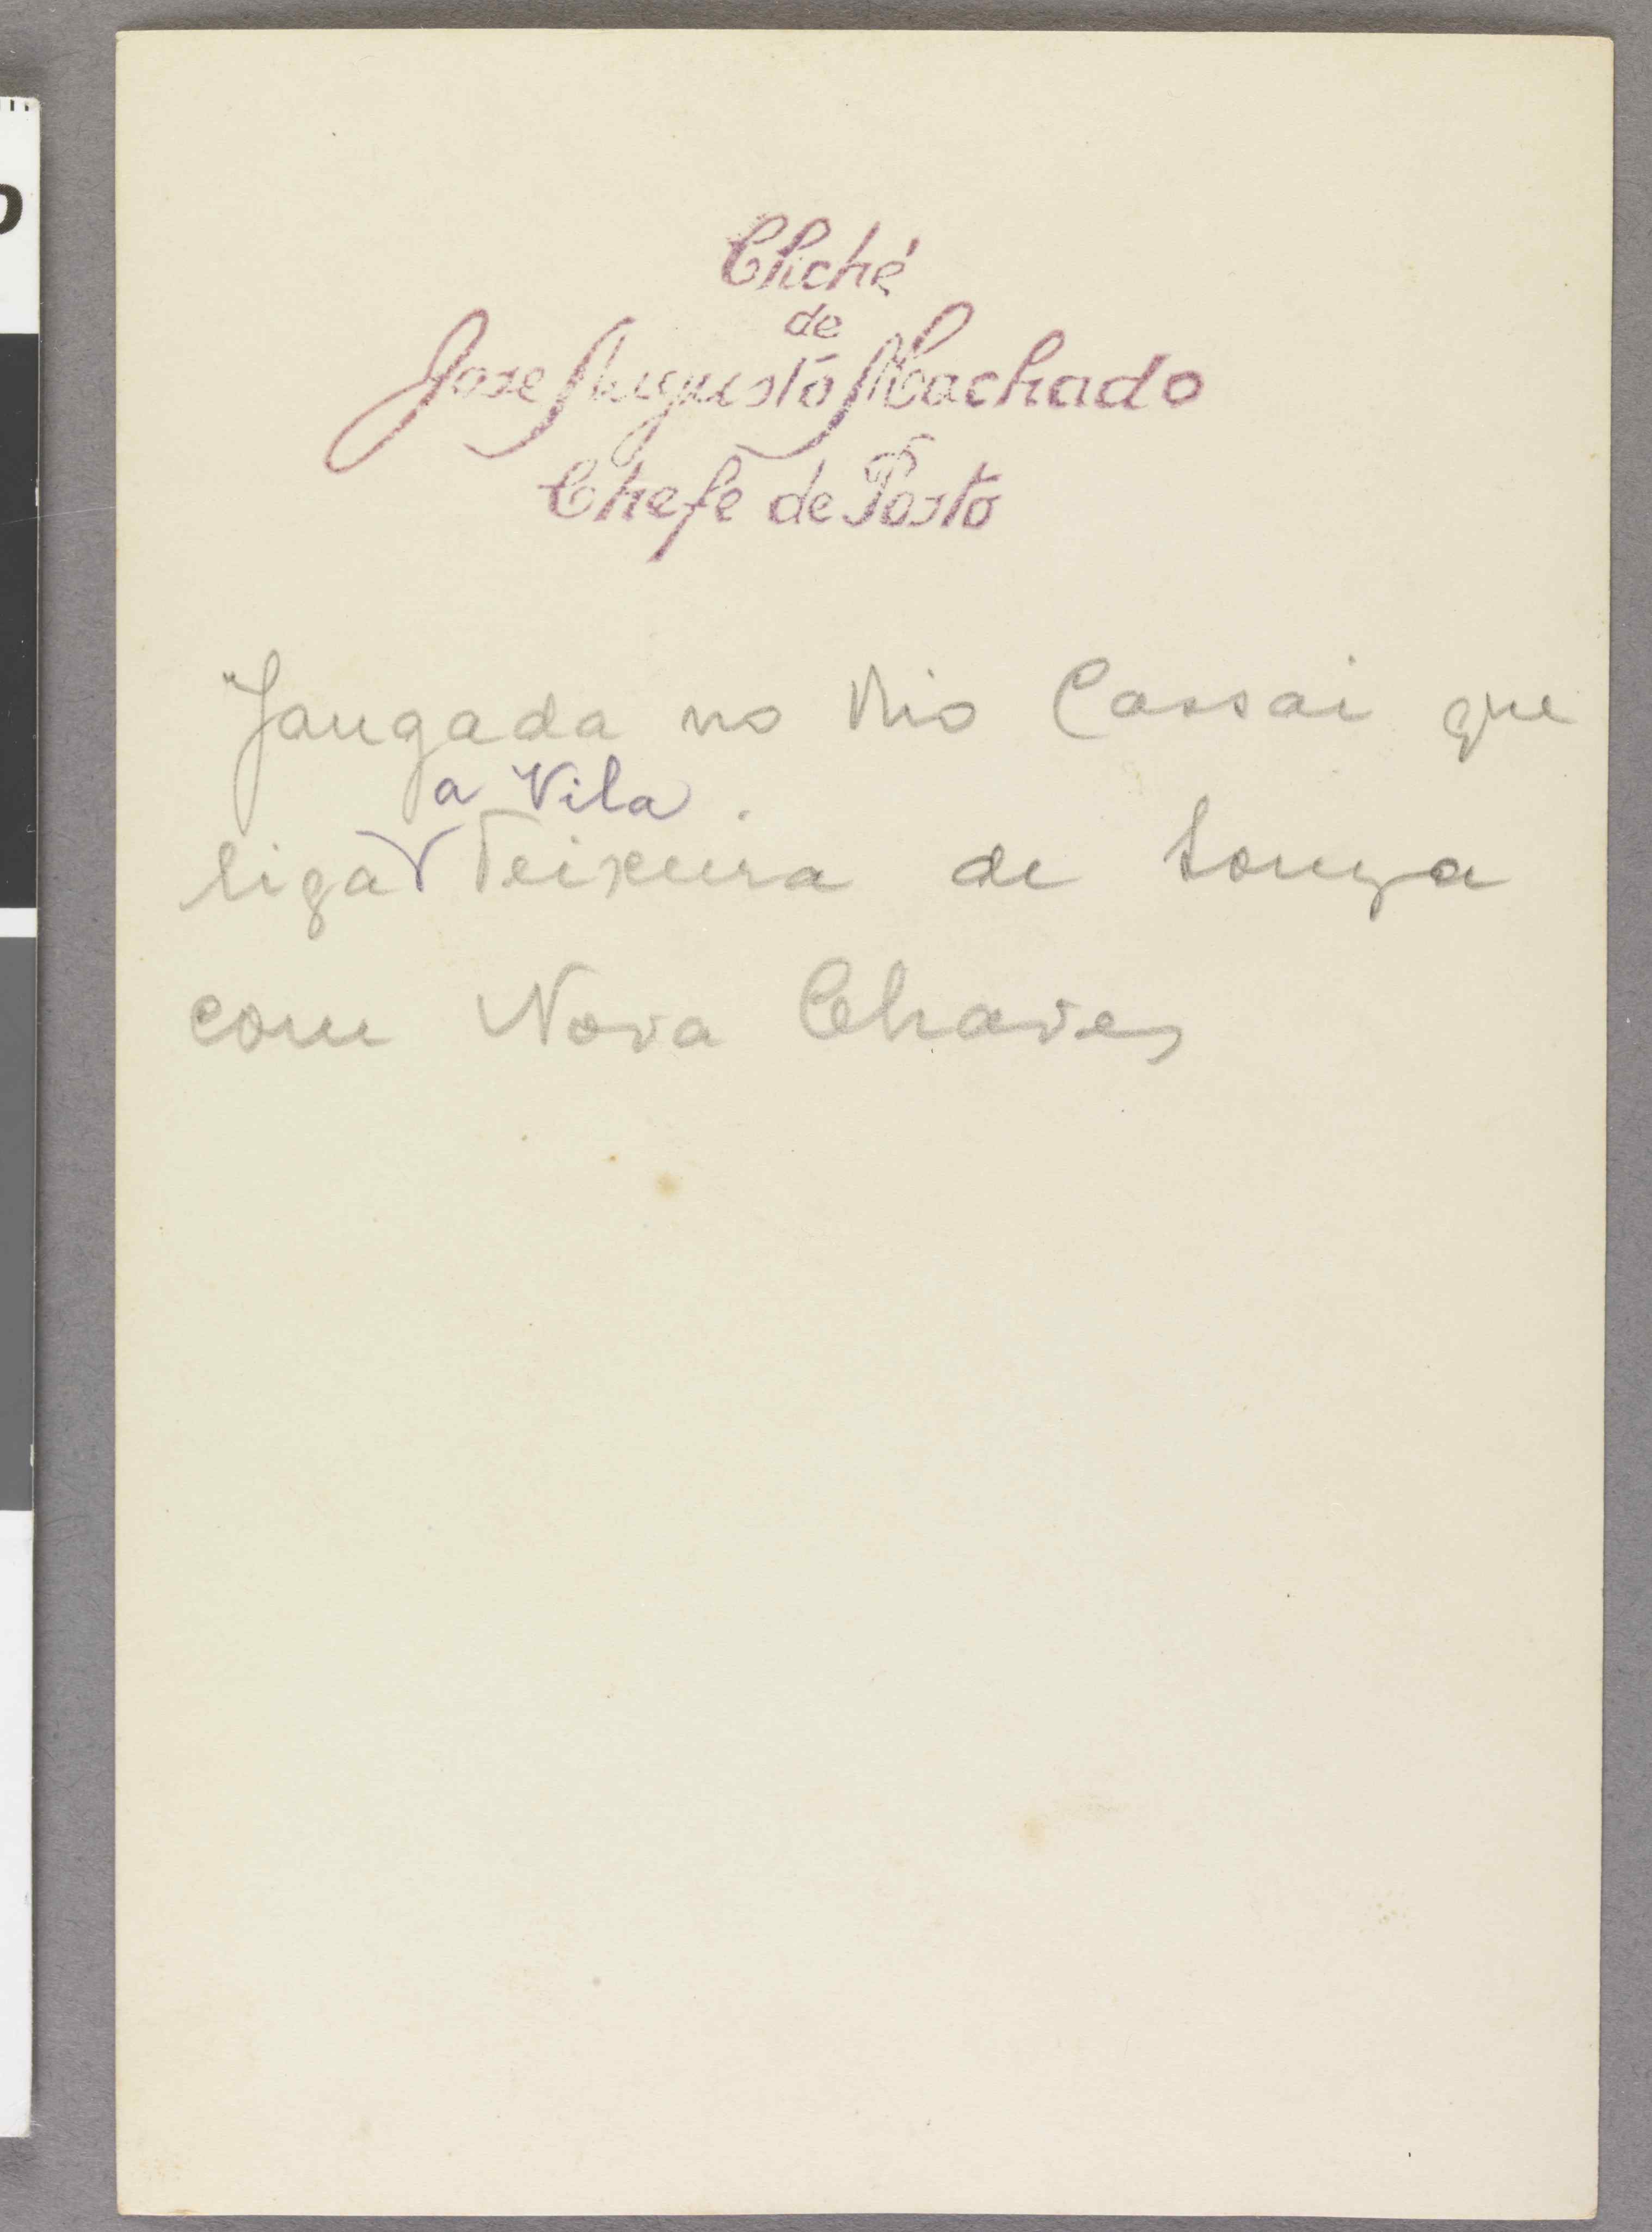 Cliché
de
Jose Augusto Machado
Chefe de Posto
Jangada no Rio Cassai que
a Vila
liga Teixeira de Souza
com Nova Chaves